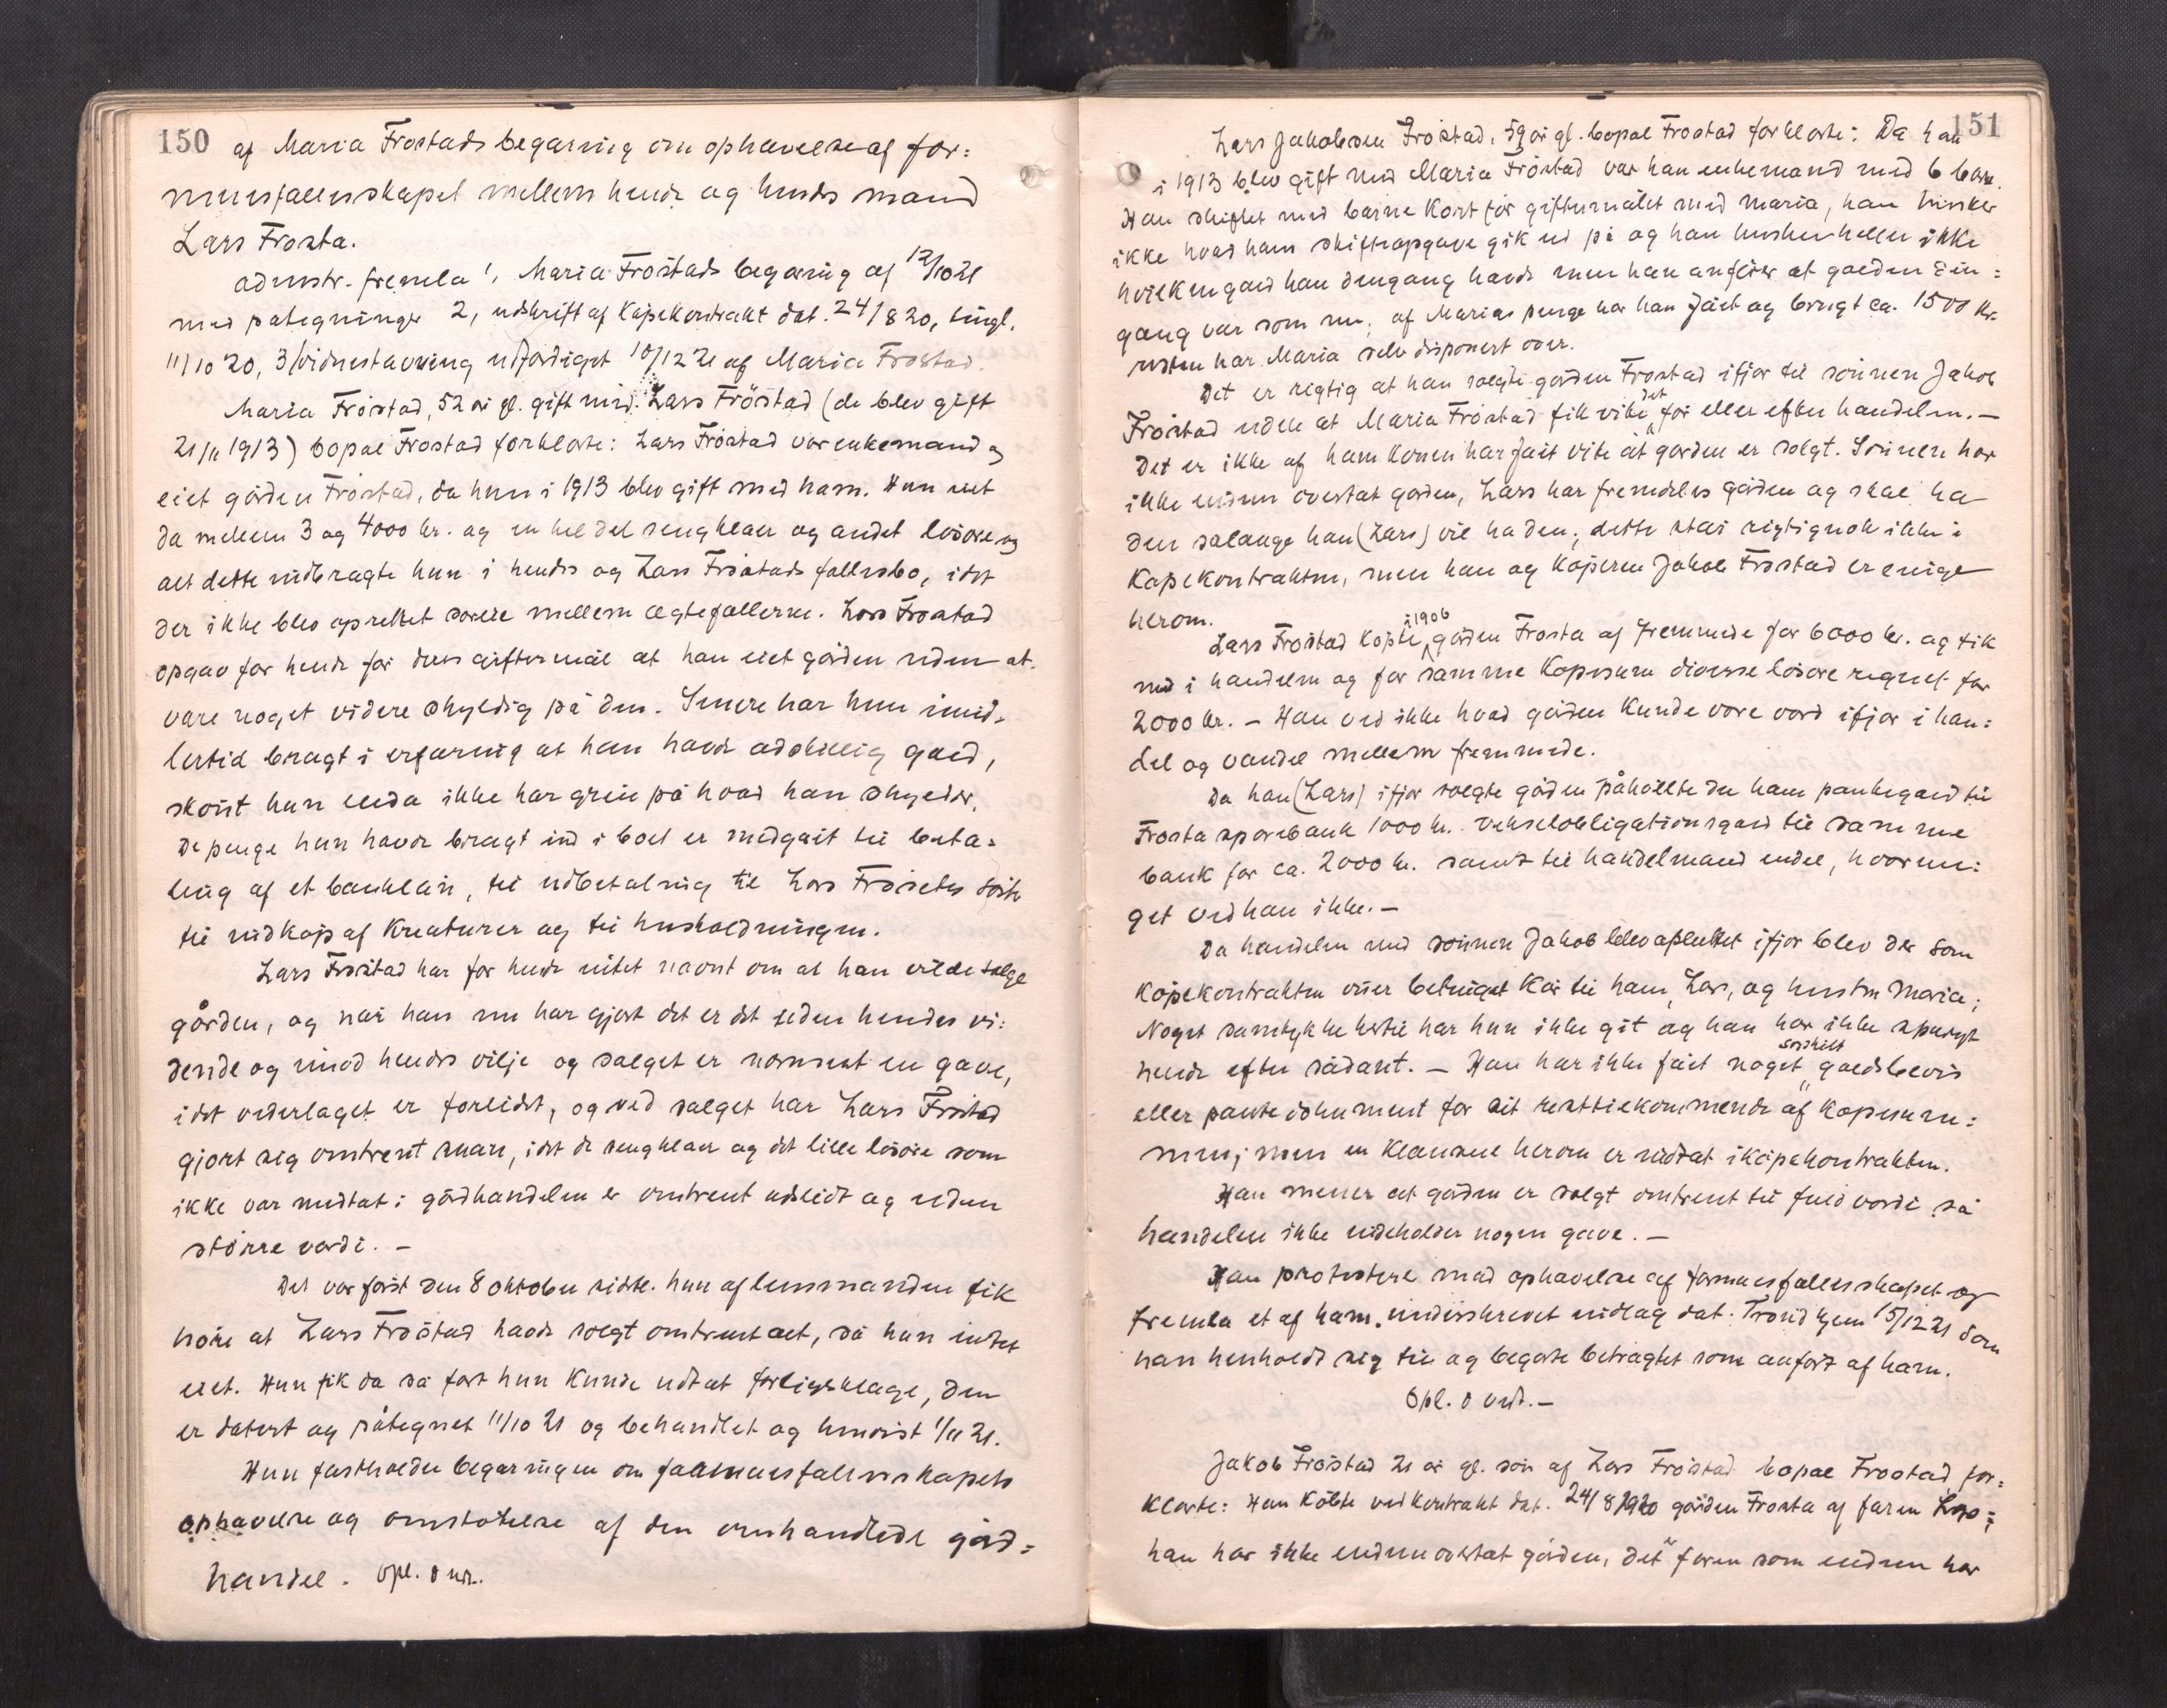 150
af Maria Frostads begæring om ophævelse af for=
muesfællesskapet mellem hende og hendes mand
Lars Frosta.
admstr. fremla 1, Maria Frøstads begæring af 12/10 21
med pategninger 2, udskrift af Kjøpekontrakt dat. 24/8 20, tingl.
11/10 20, 3/vidnestævning udfærdiget 10/12 21 af Maria Frostad.
Maria Frøstad, 52 år gl. gift med Lars Frøstad (de blev gift
21/11 1913) bopæl Frostad forklarte: Lars Frøstad var enkemand og
eiet gården Frøstad, da hun i 1913 blev gift med ham. Hun eiet
da mellem 3 og 4000 kr. og en hel del sengklær og andet løsøre og
alt dette indbragte hun i hendes og Lars Frøstads fællesbo, idet
der ikke blev oprettet særeie mellem ægtefællerne. Lars Frostad
opgav for hende før deres giftermål at han eiet gården uden at
være noget videre skyldig på den. Senere har hun imid=
lertid bragt i erfaring at han havde adskillig gæld,
skønt hun enda ikke har grei på hvad han skylder.
De penge hun havde bragt ind i boet er medgåt til beta=
ling af et banklån, til udbetaling til Lars Frøstads
til indkøp af Kreaturer og til husholdningen.
Lars Frøstad har for hende intet nævnt om at han vilde sælge
gården, og når han nu har gjort det er det uden hendes vi=
dende og imod hendes vilje og salget er nærmest en gave,
idet vederlaget er forlidet, og ved salget har Lars Frøstad
gjort sig omtrent snau, idet de sengklær og det lille løsøre som
ikke var medtat i gårdhandelen er omtrent udslidt og uden
større værdi. –
Det var først den 8 oktober sidstl. hun af lensmanden fik
høre at Lars Frøstad havde solgt omtrent alt, så hun intet
eiet. Hun fik da så fort hun Kunde udtat forligsklage, den
er datert og påtegnet 11/10 21 og behandlet og henvist 1/11 21.
Hun fastholder begæringen om formuesfællesskapets
ophævelse og omstøtelse af den omhandlede gård=
handel. Opl. o ved.
151
Lars Jakobsen Frøstad, 59 år gl. bopæl Frostad forklarte: Da han
i 1913 blev gift med Maria Frøstad var han enkemand med 6 børn.
Han skiftet med barna Kort før giftermålet med Maria, han husker
ikke hvad hans skifteopgave gik ud på og han husker heller ikke
hvilken gæld han dengang havde men han anfører at gælden den=
gang var som nu; af Marias penge har han fået og brugt ca. 1500 kr.
resten har Maria selv disponert over.
Det er rigtig at han solgte gården Frostad ifjor til sønnen Jakob
Frøstad uden at Maria Frøstad fik vite det før eller efter handelen. –
Det er ikke af ham konen har fått vite at garden er solgt. Sønnen har
ikke endnu overtat garden, Lars har fremdeles gården og skal ha
den salænge han (Lars) vil ha den, dette står rigtignok ikke i
Køpekontrakten, men han og Køperen Jakob Frøstad er enige
herom.
Lars Frøstad Køpte i 1906 gården Frosta af fremmede for 6000 kr. og fik
med i handelen og for samme Kjøpesum diverse løsøre regnet for
2000 kr. – Han ved ikke hvad gården Kunde være værd ifjor i han=
del og vandel mellem fremmede.
Da han (Lars) ifjor solgte gården påhvilte der ham pantegæld til
Frosta sparebank 1000 kr. vekselobligationsgæld til samme
bank for ca. 2000 kr. samt til handelsmand endel, hvor me=
get ved han ikke. –
Da handelen med sønnen Jakob blev afsluttet ifjor blev der som
Køpekontrakten viser betinget Kår til ham, Lars, og hustru Maria;
Noget samtykke hertil har hun ikke git og han har ikke spurgt
hende efter sådant. – Han har ikke fået noget særskilt gældsbevis
eller pantedokument for sit resttilkommende af køpesum=
men; men en Klausul herom er indtat i køpekontrakten.
Han mener at gården er solgt omtrent til fuld værdi så
handelen ikke indeholder nogen gave. –
Han protestere mod ophævelse af formuesfællesskapet og
fremla et af ham underskrevet indlæg dat. Trondhjem 15/12 21 som
han henholdt sig til og begærte betragtet som anført af ham.
Opl. o ved. –
Jakob Frøstad 21 år gl. søn af Lars Frøstad bopæl Frostad for=
klarte: Han Købte ved kontrakt dat. 24/8 1920 gården Frosta af faren Lars;
han har ikke endnu overtat gården, det er faren som endnu har